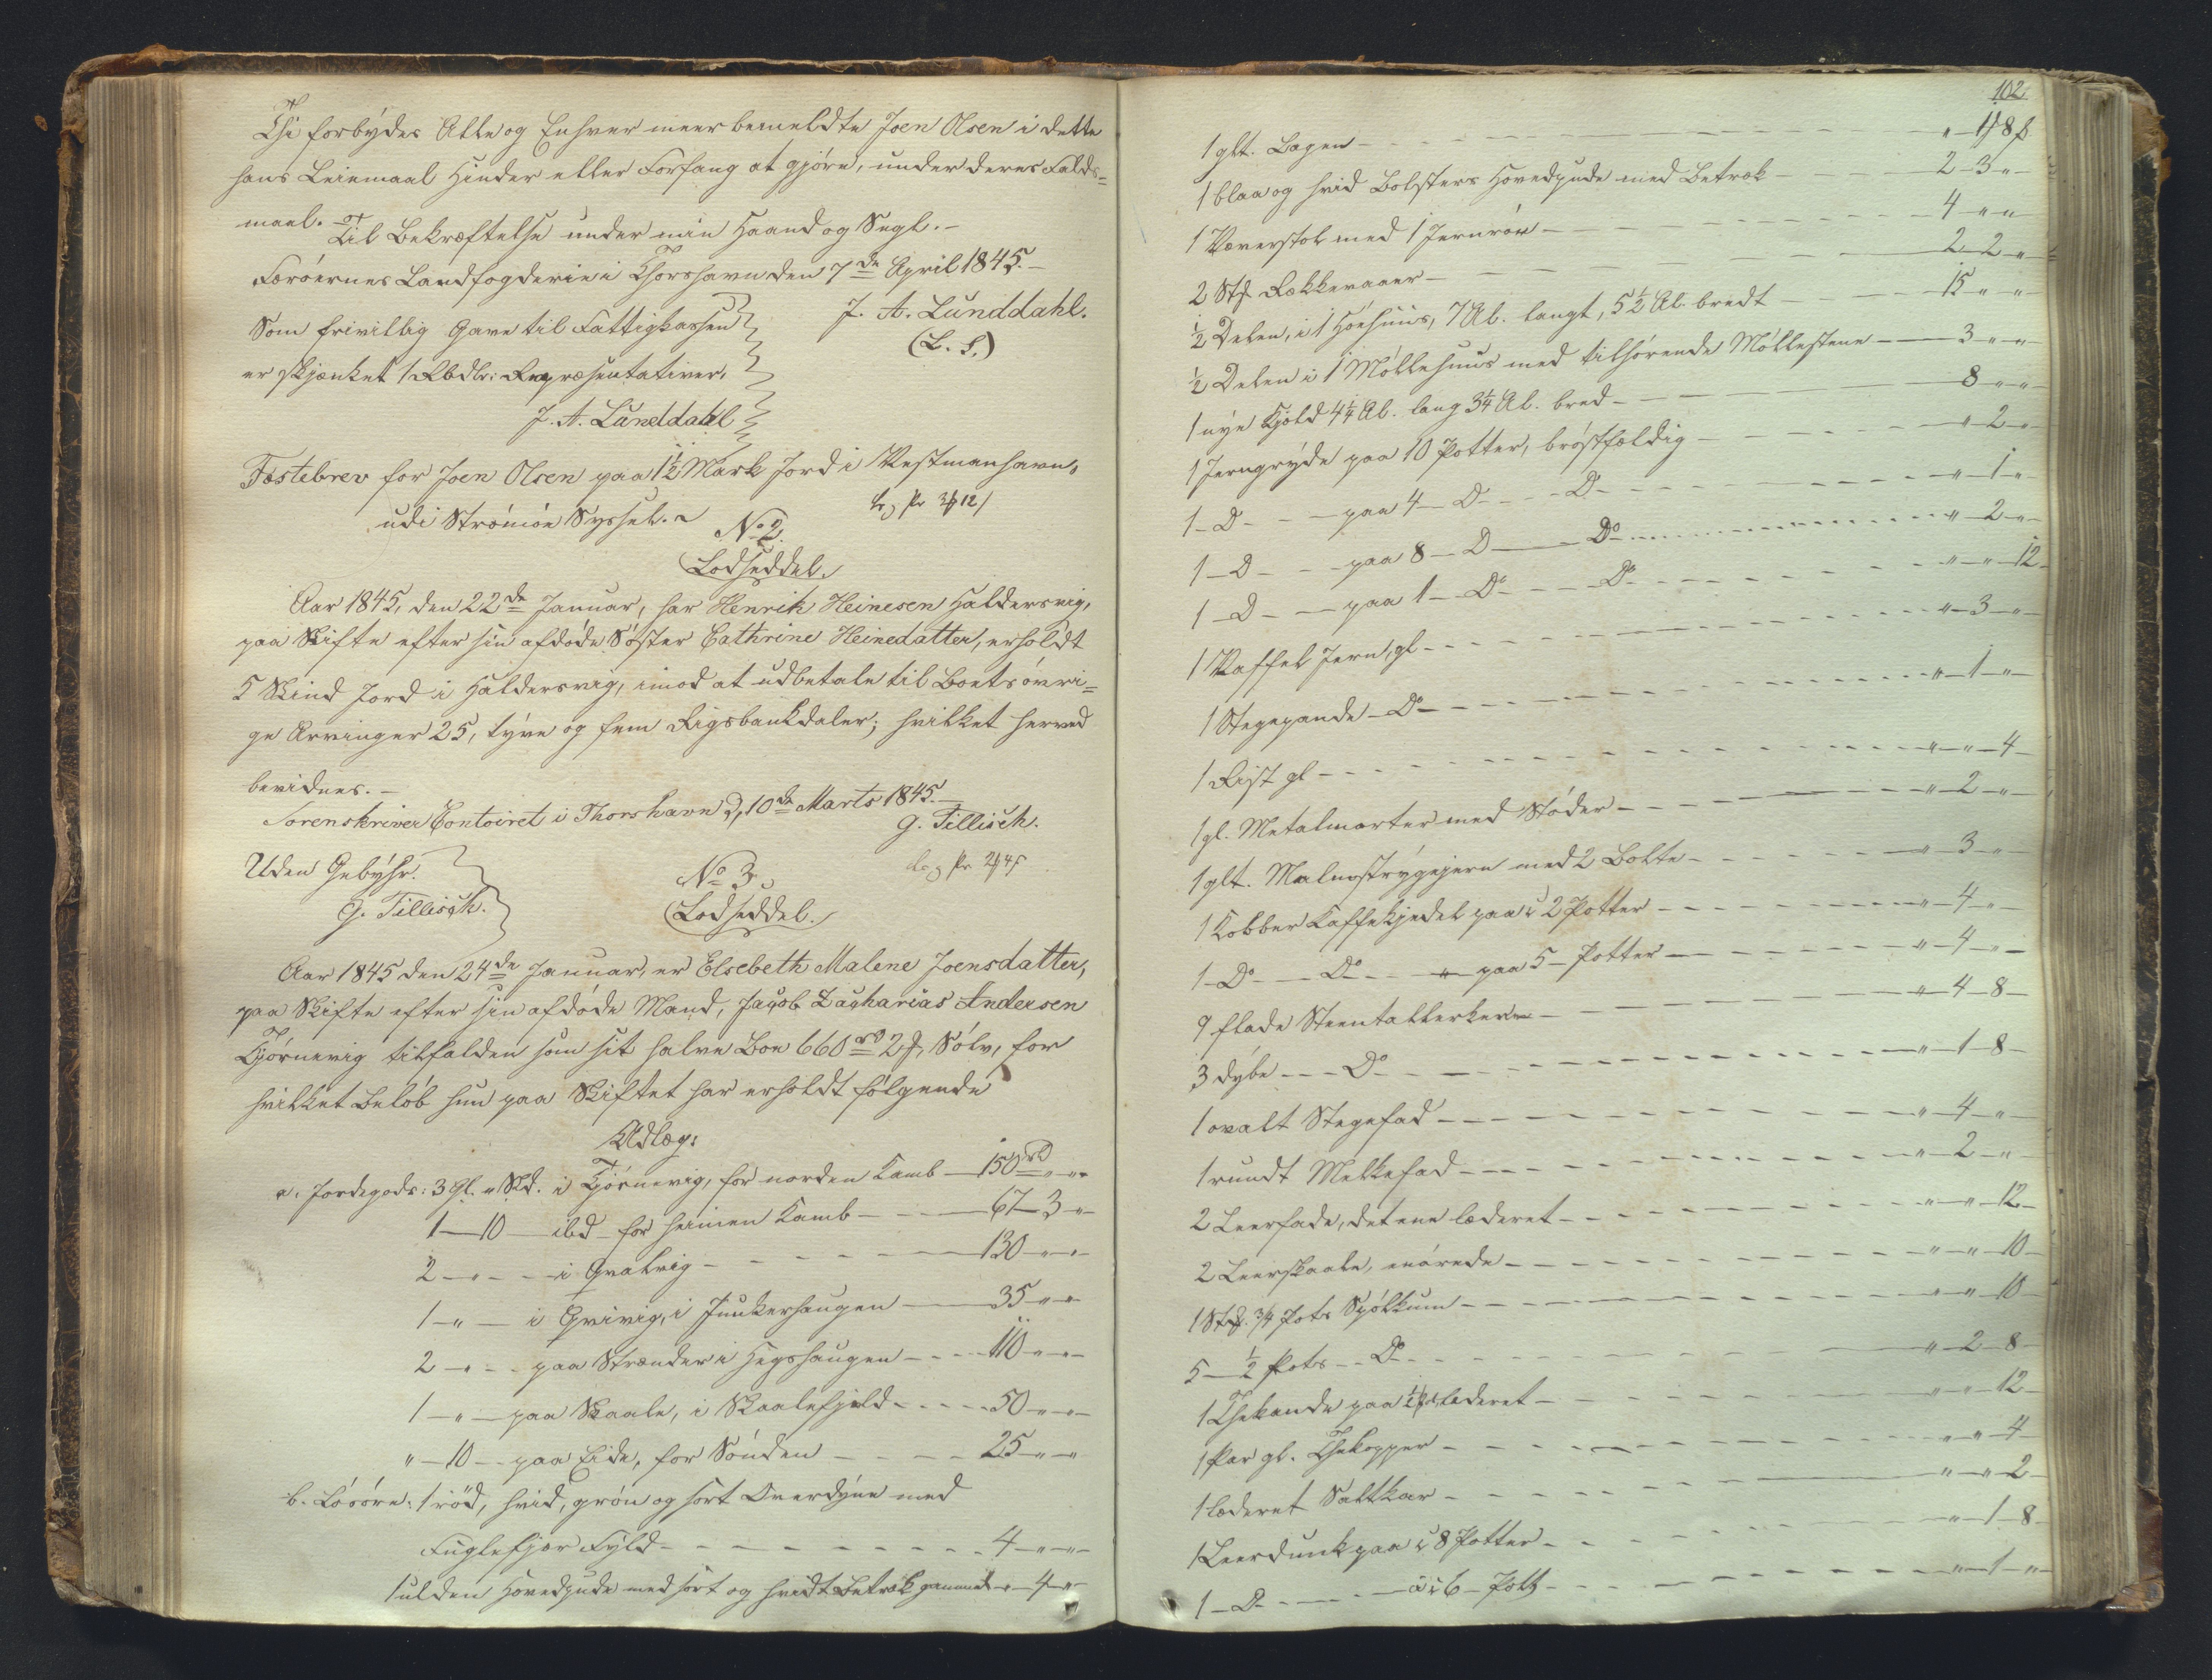 Thi forbydes Alle og Enhver meer bemeldte Joen Olsen i dette
hans Leiemaal Hinder eller Forfang at gjöre, under deres Falds=
maal. Til Bekræftelse under min Haand og Segl.-
Færöernes Landfogderie i Thorshavn den 7de April 1845.-
J. A. Lunddahl.
(L. S.)
Som frivillig Gave til Fattigkassen
er skjænket 1 Rbdlr: Repræsentativer.
J. A. Lunddahl
Fæstebrev for Joen Olsen paa 1½ Mark Jord i Vestmanhavn,
udi Strömöe Syssel.
No 2.
Lodseddel.
Aar 1845, den 22de Januar, har Henrik Heinesen Haldersvig,
paa Skifte efter sin afdöde Söster Cathrine Heinedatter, erholdt
5 Skind Jord i Haldersvig, imod at udbetale til Boets övri=
ge Arvinger 25, tyve og fem Rigsbankdaler; hvilket herved
bevidnes.-
Sorenskriver Contoiret i Thorshavn d, 10de Marts 1845.-
G. Tillisch.
Uden Gebyhr.
G. Tillisch.
No 3
Lodseddel.
Aar 1845 den 24de Januar, er Elsebeth Malene Joensdatter,
paa Skifte efter sin afdöde Mand, Jacob Zacharias Andersen
Tjörnevig tilfalden som sit halve Boe 660 rd 2 ₰, Sölv, for
hvilket Belöb hun paa Skiftet har erholdt fölgende
Udlæg:
a. Jordegods: 3 Gl. " Skd. i Tjörnevig, for norden Kamb - 150 rd " "
1 - 10 - ibd - for heimen Kamb - 67 - 3 "
2 - " - i Qvalvig - 130 - " "
1 - " - i Qvivig, i Junkerhaugen - 35 " "
2 - " - paa Strænder i Hegshaugen - 110 " "
1 - " - paa Skaale, i Skaalefjeld - 50 " "
" - 10 - paa Eide, for Sönden - 25 - " "
b. Lösöre: 1 röd, hvid, grön og sort Overdyne med
Fuglefjær Fyld - 4 - " "
1 ulden Hovedpude med sort og hvidt Betræk gammel " 4 "
102
1 glt. Lagen - " - 1 ₰ 8 ß
1 blaa og hvid Bolsters Hovedpude med Betræk - 2 - 3 "
1 Væverstol med 1 Jernrön - 4 " "
2 Stk Rækkevarer - 2 - 2 "
½ Delen, i 1 Höehuus, 7 Al. langt, 5½ Al. bredt - 15 " "
½ Delen i 1 Möllehuus med tilhörende Möllestene - 3 " "
1 nye Kjöld 4¼ Al. lang 3¼ Al. bred - 8 " "
1 Jerngryde paa 10 Potter, bröstfældig - " 2 "
1 - D - paa 4 - D - D - " 1 "
1 - D - paa 8 - D - Do - " 2 "
1 - D - paa 1 - Do - Do - " " 12
1 Vaffel Jern, gl - " 3 "
1 Stegepande - Do - " 1 "
1 Rist gl - " " 4
1 gl. Metalmorter med Stöder - " 2 "
1 glt. Malmströgejern med 2 Bolte - " 3 "
1 Kobber Kaffekjedel paa 2 Potter - " 4 "
1 - Do - Do - " paa 5 - Potter - " 4 "
9 flade Steentallerkener - " 4 - 8
3 dybe - Do - " 1 - 8
1 ovalt Stegefad - " 4 "
1 rundt Melkefad - " 2 "
2 Leerfade, det ene læderet - " " 12
2 Leerskaale, - " " 10
1 Stk. ¾ Pots Spölkum - " " 10
5 - ½ Pots - Do - " 2 - 8
1 Thekande paa læderet - " " 12
1 Par gl. Thekopper - " " 4
1 læderet Saltkar - " " 2
1 Leerdunk paa 8 Potter - " 1 - 8
1 - D - 6 - Pott - " 1 "